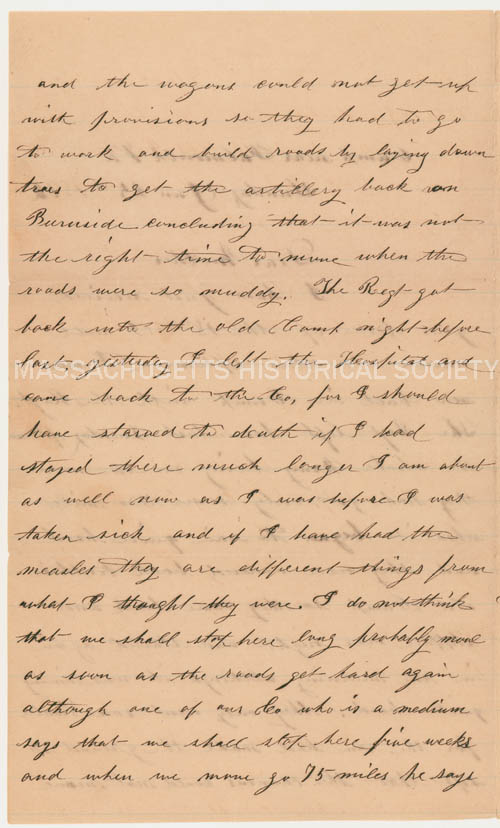 and the wagons could not get up
with provisions so they had to go
to work and build roads by laying down
trees to get the artillery back
Burnside concluding that it was not
the right time to move when the
roads were so muddy. The Regt got
back into the old Camp night before
last, yesterday I left the Hospital and
MASSACHUSETTS HISTORICAL SOCIETY
came back to the Co, for I should
have starved to death if I had
stayed there much longer I am about
as well now as I was before I was
taken sick and if I have had the
measles they are different things from
what I thought they were. I do not think
that we shall stop here long probably move
as soon as the roads get hard again
although one of our Co who is a medium
says that we shall stop here five weeks
and when we move go 75 miles he says